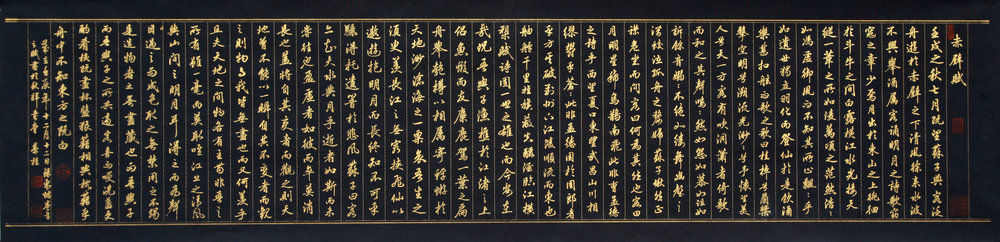 赤壁賦
壬戌之秋七月既望蘇子與客泛
舟遊於赤壁之下清風徐來水波
不興舉酒屬客誦明月之詩歌窈
窕之章少焉月出於東山之上徘徊
於斗牛之間白露橫江水光接天
縱一葦之所如凌萬頃之茫然浩浩乎
如馮虛御風而不知其所止飄飄乎
如遺世獨立羽化而登仙於是飲酒
樂甚扣舷而歌之歌曰桂棹兮蘭槳
擊空明兮溯流光渺渺兮予懷望美
人兮天一方客有吹洞簫者倚歌
而和之其聲嗚嗚然如怨如慕如泣如
訴餘音嫋嫋不絕如縷舞幽壑之
潛蛟泣孤舟之嫠婦蘇子愀然正
襟危坐而問客曰何為其然也客曰
月明星稀烏鵲南飛此非曹孟德
之詩乎西望夏口東望武昌山川相
繆鬱乎蒼蒼此非孟德之困於周郎者
乎方其破荊州下江陵順流而東也
舳艫千里旌旗蔽空釃酒臨江橫
槊賦詩固一世之雄也而今安在
哉況吾與子漁樵於江渚之上
侶魚蝦而友麋鹿駕一葉之扁
舟舉匏樽以相屬寄蜉蝣於
天地渺滄海之一粟哀吾生之
須臾羨長江之無窮挾飛仙以
遨遊抱明月而長終知不可乎
驟得託遺響於悲風蘇子曰客
亦知夫水與月乎逝者如斯而未
嘗往也盈虛者如彼而卒莫消
長也蓋將自其變者而觀之則天
地曾不能以一瞬自其不變者而觀
之則物與我皆無盡也而又何羨乎
且夫天地之間物各有主苟非吾之
所有雖一毫而莫取惟江上之清風
與山間之明月耳得之而為聲
目遇之而成色取之無禁用之不竭
是造物者之無盡藏也而吾與子
之所共適客喜而笑洗盞更
酌肴核既盡杯盤狼藉相與枕藉乎
舟中不知東方之既白